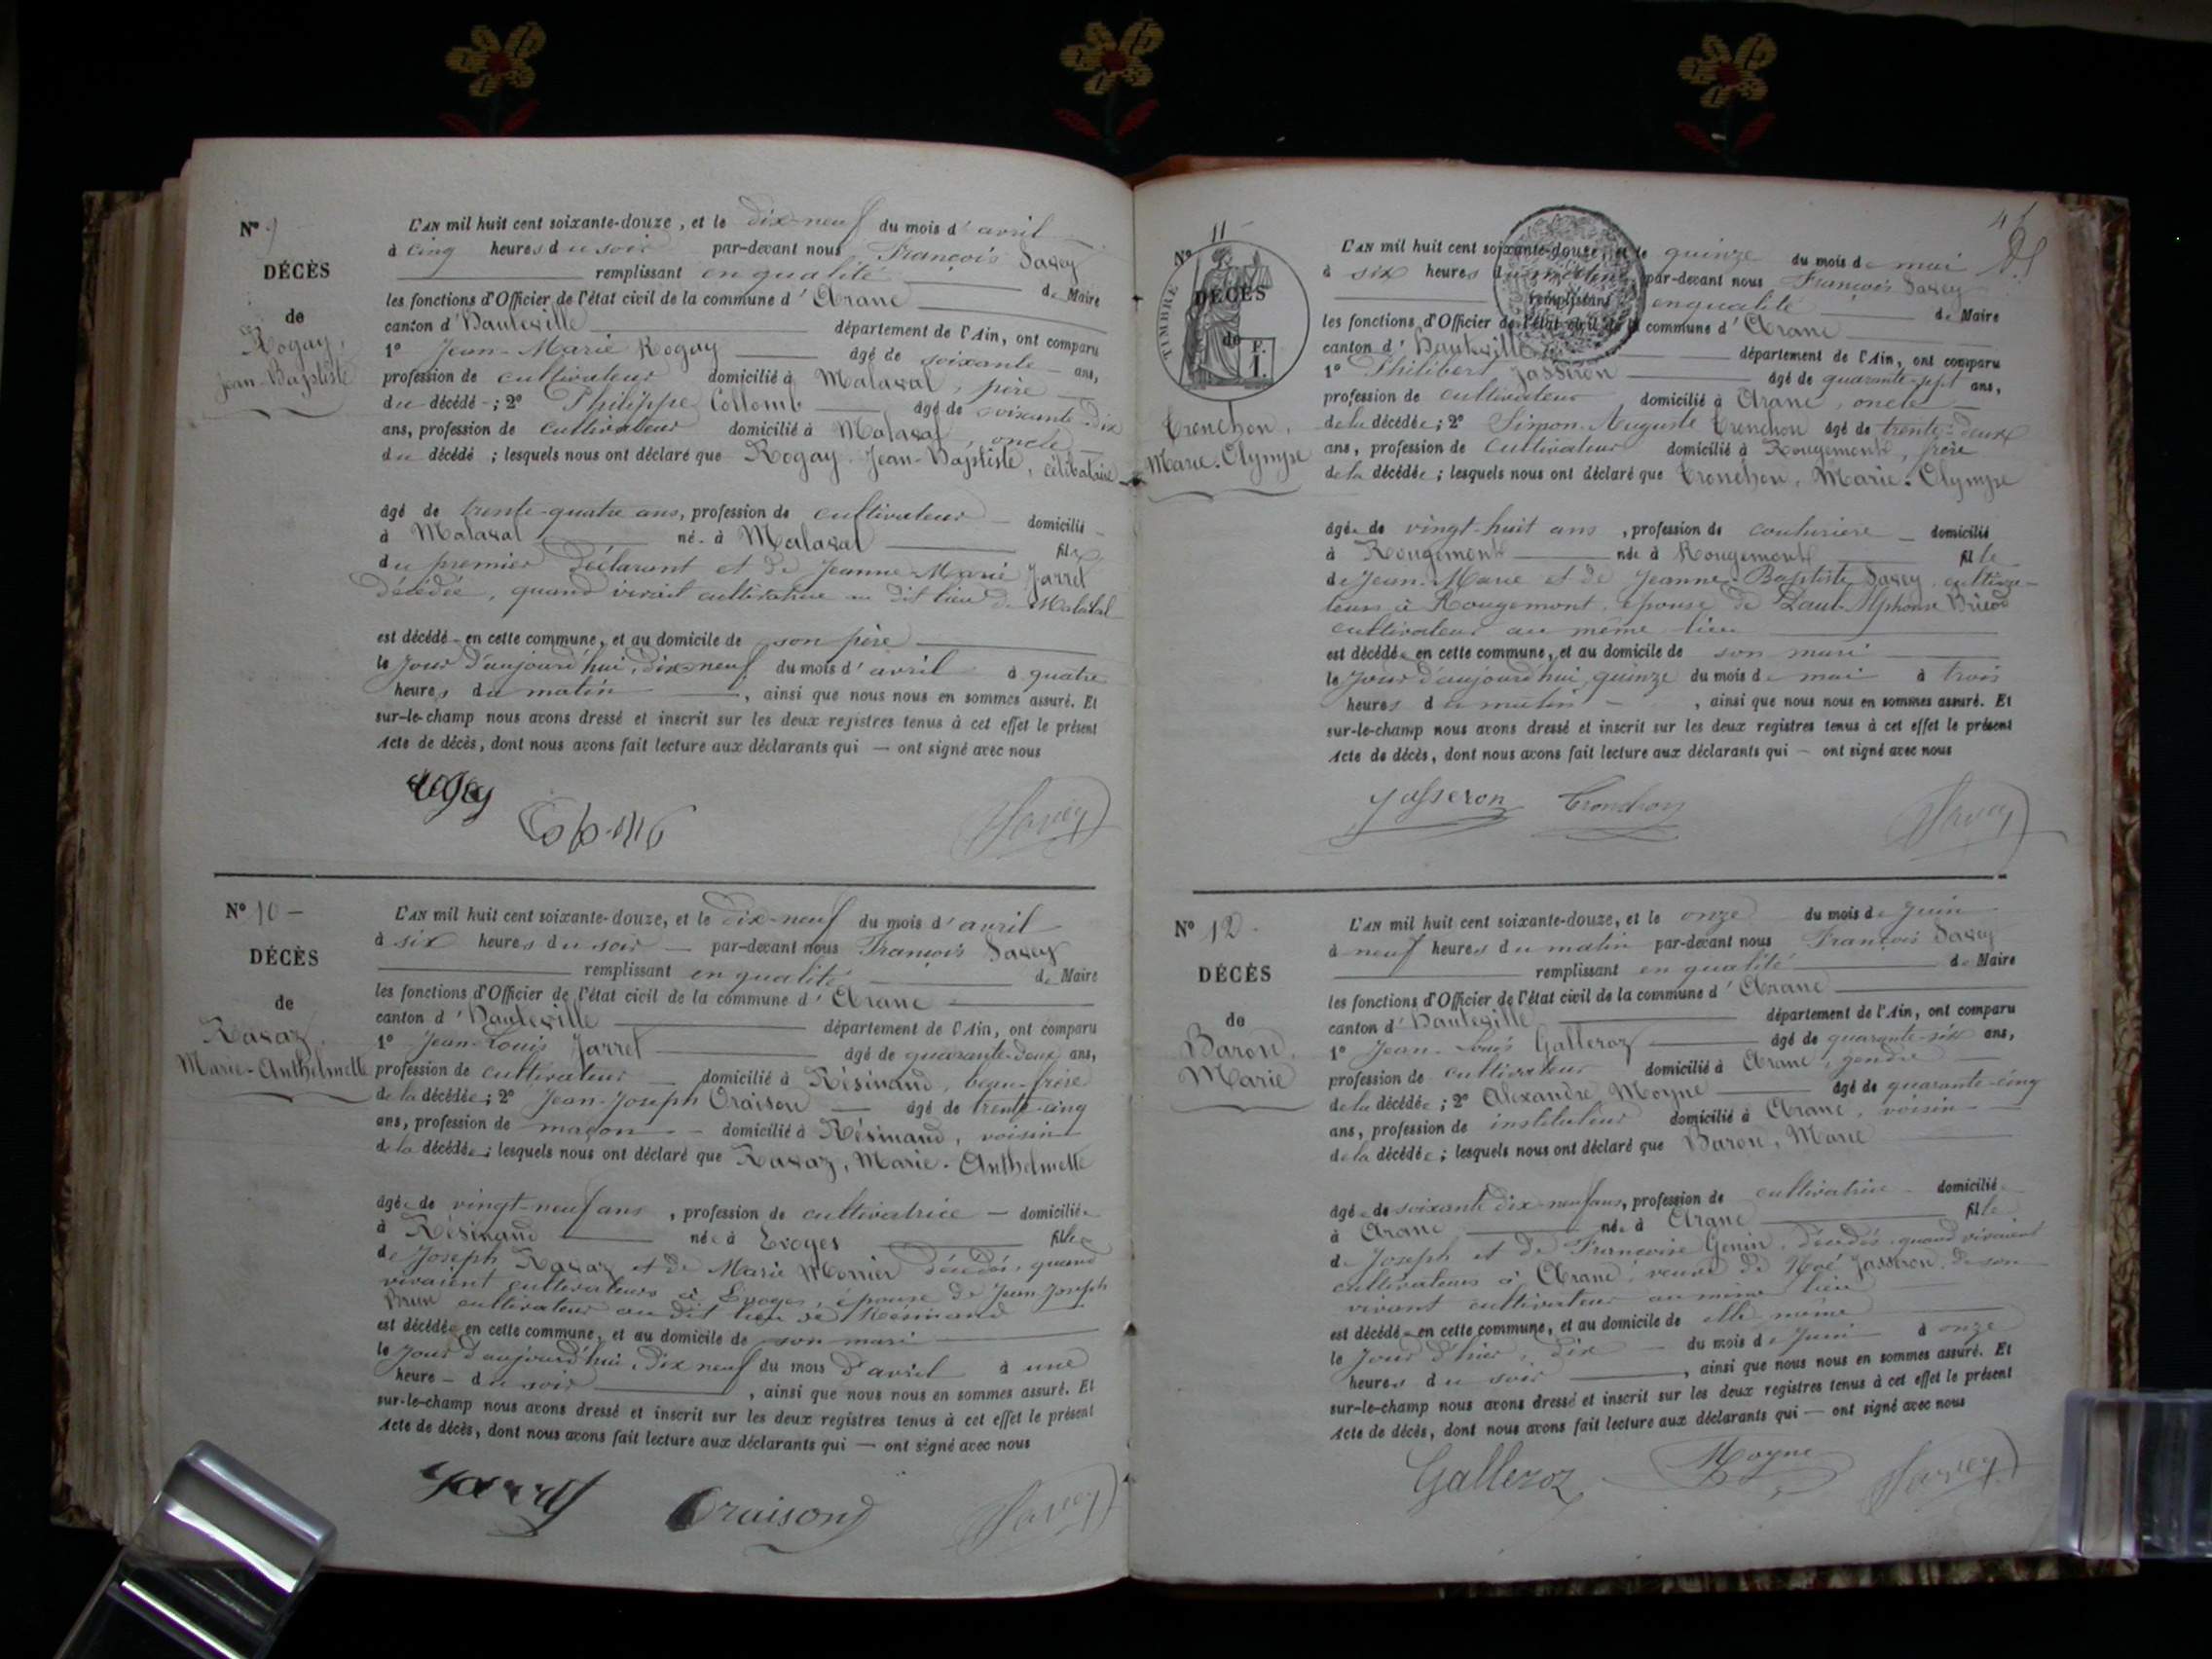 N° 9
DÉCÈS
de
Rogay,
Jean-Baptiste
L'AN mil huit cent soixante-douze, et le dix-neuf du mois d'avril
à cinq heures du soir par-devant nous François Savey
remplissant en qualité de Maire
les fonctions d'Officier de l'état civil de la commune d'Arane
canton d'Hauteville département de l'Ain, ont comparu
1° Jean-Marie Rogay âgé de soixante ans,
profession de cultivateur domicilié à Malaval, père
du décédé; 2° Philippe Collomb âgé de soixante-dix
ans, profession de cultivateur domicilié à Malaval, oncle
du décédé; lesquels nous ont déclaré que Rogay, Jean-Baptiste, célibataire
âgé de trente-quatre ans, profession de cultivateur domicilié
à Malaval né à Malaval fils
du premier déclarant et de Jeanne-Marie Jarret
décédée, quand vivait cultivatrice au dit lieu de Malaval
est décédé en cette commune, et au domicile de son père
le jour d'aujourd'hui, dix-neuf du mois d'avril à quatre
heures du matin, ainsi que nous nous en sommes assuré. Et
sur-le-champ nous avons dressé et inscrit sur les deux registres tenus à cet effet le présent
Acte de décès, dont nous avons fait lecture aux déclarants qui — ont signé avec nous
Rogay
Collomb
Savey
N° 10 -
DÉCÈS
de
Ravaz,
Marie-Anthelmette
L'AN mil huit cent soixante-douze, et le dix-neuf du mois d'avril
à six heures du soir par-devant nous François Savey
remplissant en qualité de Maire
les fonctions d'Officier de l'état civil de la commune d'Arane
canton d'Hauteville département de l'Ain, ont comparu
1° Jean-Louis Jarret âgé de quarante-deux ans,
profession de cultivateur domicilié à Résinand, beau-frère
de la décédée; 2° Jean-Joseph Oraison âgé de trente-cinq
ans, profession de maçon domicilié à Résinand, voisin
de la décédée; lesquels nous ont déclaré que Ravaz, Marie-Anthelmette
âgée de vingt-neuf ans, profession de cultivatrice domiciliée
à Résinand née à Evoges fille
de Joseph Ravaz et de Marie Monier décédés, quand
vivaient cultivateurs à Evoges, épouse de Jean-Joseph
Brun cultivateur au dit lieu de Résinand
est décédée en cette commune, et au domicile de son mari
le jour d'aujourd'hui dix neuf du mois d'avril à une
heure du soir, ainsi que nous nous en sommes assuré. Et
sur-le-champ nous avons dressé et inscrit sur les deux registres tenus à cet effet le présent
Acte de décès, dont nous avons fait lecture aux déclarants qui — ont signé avec nous
Jarret Oraison Savey
N° 11
TIMBRE
F. 1.
DÉCÈS
de
Tronchon,
Marie-Olympe
L'AN mil huit cent soixante-douze, et le quinze du mois de mai
à six heures du matin par-devant nous François Savey
remplissant en qualité de Maire
les fonctions d'Officier de l'état civil de la commune d'Arane
canton d'Hauteville département de l'Ain, ont comparu
1° Philibert Jasseron âgé de quarante-sept ans,
profession de cultivateur domicilié à Arane, oncle
de la décédée; 2° Simon-Auguste Tronchon âgé de trente-deux
ans, profession de cultivateur domicilié à Rougemont, frère
de la décédée; lesquels nous ont déclaré que Tronchon, Marie-Olympe
âgée de vingt-huit ans, profession de couturière domicilié
à Rougemont née à Rougemont fille
de Jean-Marie et de Jeanne-Baptiste Savey, cultiva-
teurs à Rougemont, épouse de Paul-Alphonse
cultivateur au même lieu
est décédée en cette commune, et au domicile de son mari
le jour d'aujourd'hui, quinze du mois de mai à trois
heures du matin, ainsi que nous nous en sommes assuré. Et
sur-le-champ nous avons dressé et inscrit sur les deux registres tenus à cet effet le présent
Acte de décès, dont nous avons fait lecture aux déclarants qui — ont signé avec nous
Jasseron Tronchon Savey
N° 12 -
DÉCÈS
de
Baron,
Marie
L'AN mil huit cent soixante-douze, et le onze du mois de juin
à neuf heures du matin par-devant nous François Savey
remplissant en qualité de Maire
les fonctions d'Officier de l'état civil de la commune d'Arane
canton d'Hauteville département de l'Ain, ont comparu
1° Jean-Louis Galleroz âgé de quarante-six ans,
profession de cultivateur domicilié à Arane, gendre
de la décédée; 2° Alexandre Moyne âgé de quarante-cinq
ans, profession de instituteur domicilié à Arane, voisin
de la décédée; lesquels nous ont déclaré que Baron, Marie
âgée de soixante dix-neuf ans, profession de cultivatrice domiciliée
à Arane née à Arane fille
de Joseph et de Françoise Genin, décédés, quand vivaient
cultivateurs à Arane, veuve de Noé Jasseron, de son
vivant cultivateur au même lieu
est décédée en cette commune, et au domicile de elle même
le jour d'hier, dix du mois de juin à onze
heures du soir, ainsi que nous nous en sommes assuré. Et
sur-le-champ nous avons dressé et inscrit sur les deux registres tenus à cet effet le présent
Acte de décès, dont nous avons fait lecture aux déclarants qui — ont signé avec nous
Galleroz Moyne Savey